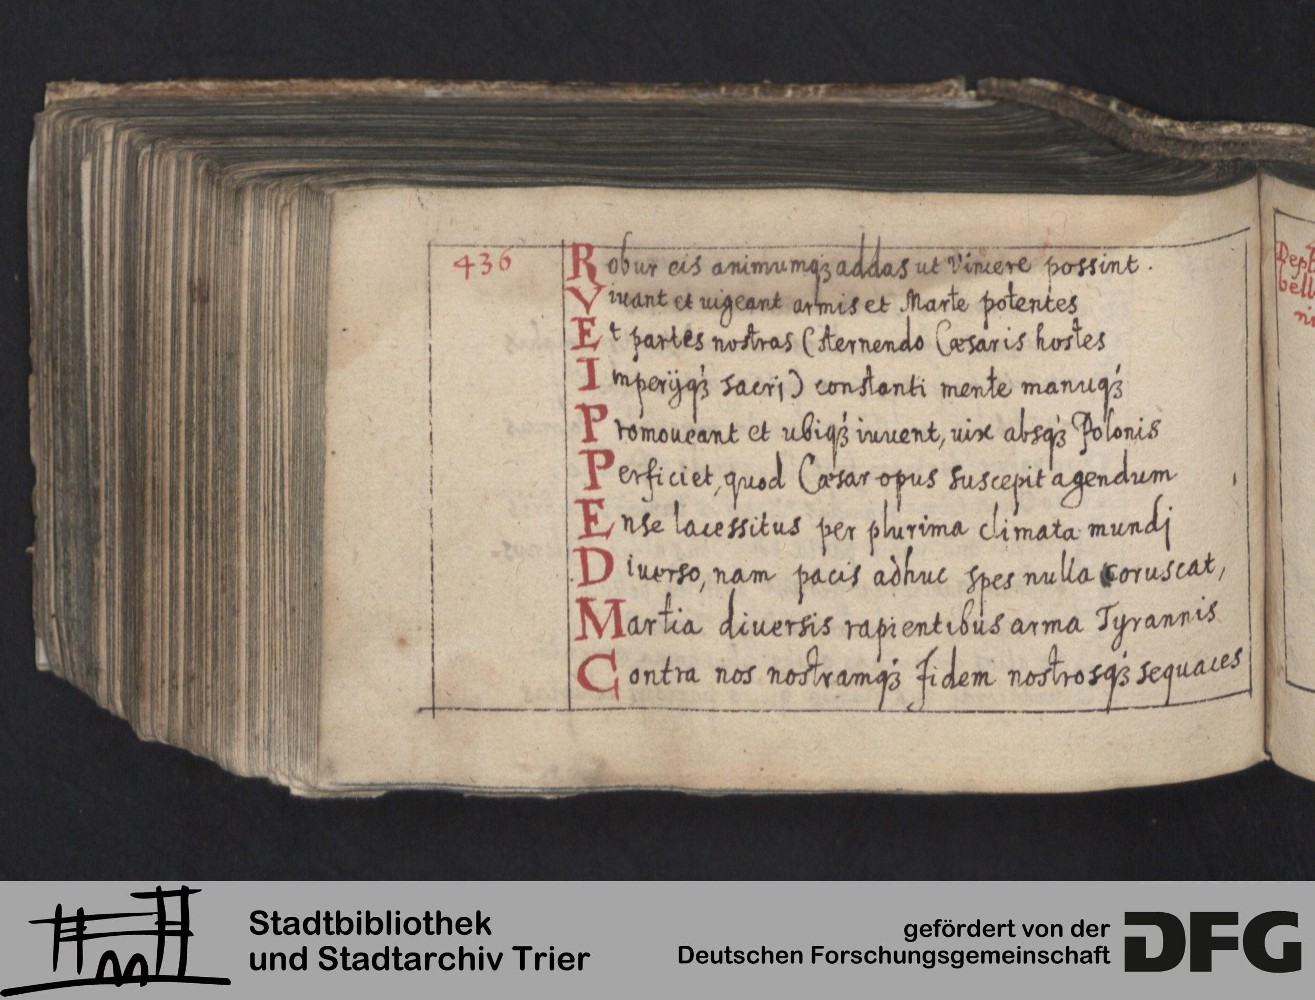 436
Robur eis animumqꝫ addas ut Vincere possint.
Viuant et uigeant armis et Marte potentes
Et partes nostras (sternendo Cæsaris hostes
Imperijqꝫ sacrj) constanti mente manuqꝫ
Promoueant et ubiqꝫ iuuent, uix absqꝫ Polonis
Perficiet, quod Cæsar opus suscepit agendum
Ense lacessitus per plurima climata mundj
Diuerso, nam pacis adhuc spes nulla coruscat,
Martia diuersis rapientibus arma Tyrannis
Contra nos nostramqꝫ fidem nostrosqꝫ sequaces
Stadtbibliothek
und Stadtarchiv Trier
gefördert von der
Deutschen Forschungsgemeinschaft
DFG